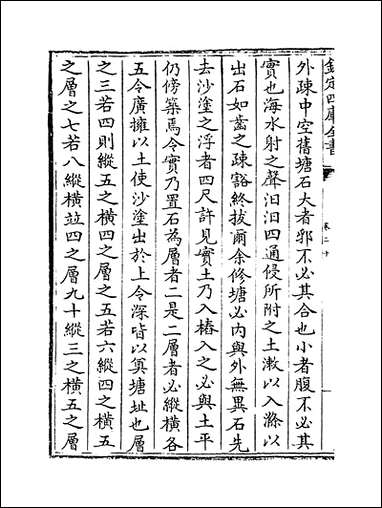 欽定四庫全書
卷二十
外疎中空舊塘石大者郛不必其合也小者腹不必其
實也海水射之聲汩汩四通侵所附之土漱以入滌以
出石如齒之疎豁終拔爾余修塘必内與外無異石先
去沙塗之浮者四尺許見實土乃入樁入之必與土平
仍傍築焉令實乃置石為層者二是二層者必縱横各
五令廣擁以土使沙塗出於上令深皆以奠塘址也層
之三若四則縱五之横四之層之五若六縱四之横五
之層之七若八縱横竝四之層九十縱三之横五之層